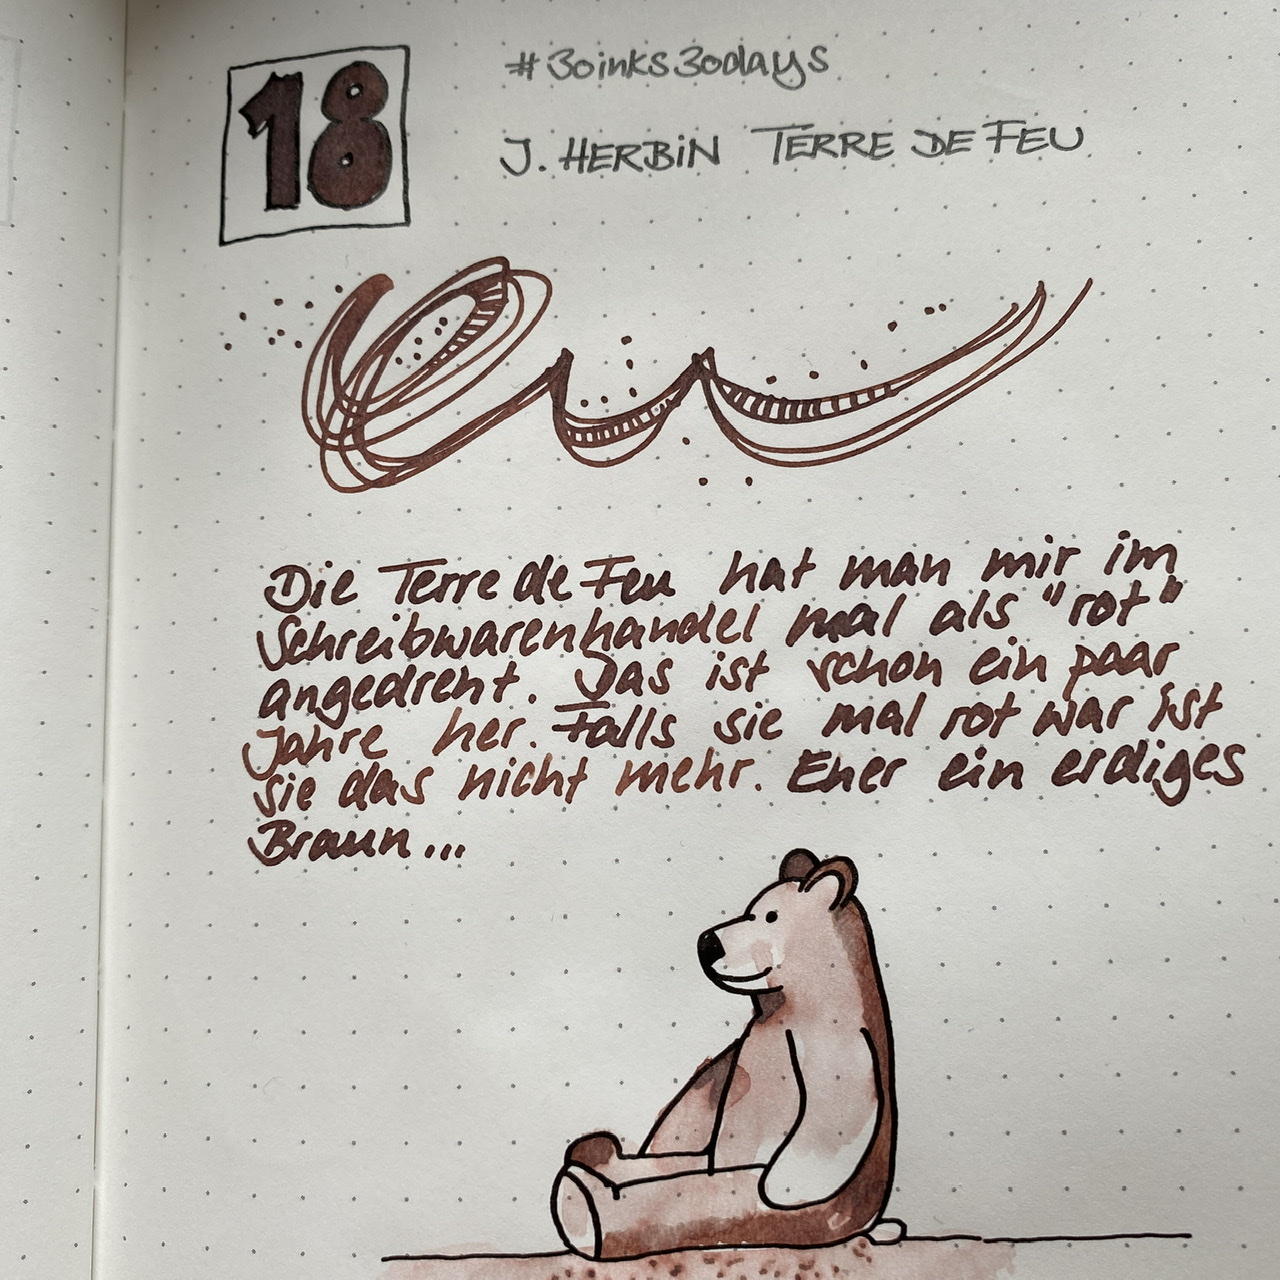 18
#30inks30days
J. HERBIN TERRE DE FEU
Die Terre de Feu hat man mir im
Schreibwarenhandel mal als "rot"
angedreht. Das ist schon ein paar
Jahre her. Falls sie mal rot war ist
sie das nicht mehr. Eher ein erdiges
Braun...